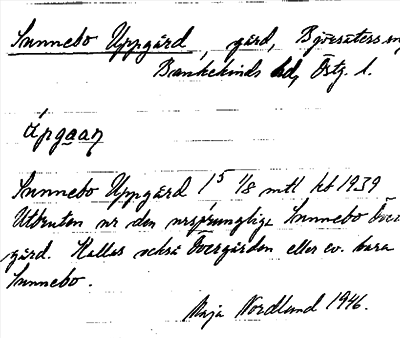 Sunnebo Uppgård, gård, Björsäters sn
Bankekinds hd, Östg. l.
Úpgaaṇ
Sunnebo Uppgård 1⁵ 1/8 mtl hb 1939
Utbruten ur den ursprungliga Sunnebo Över-
gård. Kallas också Övergården eller ev. bara
Sunnebo.
Maja Nordlund 1946.